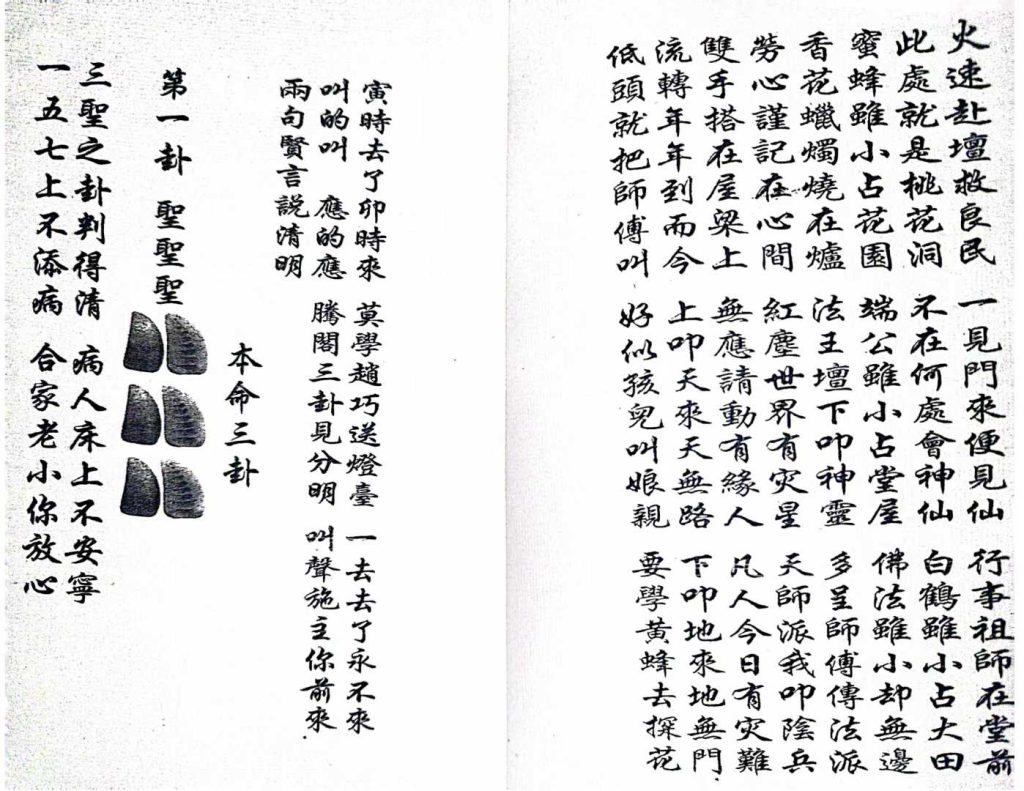 火速赴壇救良民 一見門來便見仙 行事祖師在堂前
此處就是桃花洞 不在何處會神仙 白鶴雖小占大田
蜜蜂雖小占花園 端公雖小占堂屋 佛法雖小却無邊
香花蠟燭燒在爐 法王壇下叩神靈 多呈師傅傳法派
勞心謹記在心間 紅塵世界有灾星 天師派我叩陰兵
雙手搭在屋梁上 無應請動有緣人 凡人今日有灾難
流轉年年到而今 上叩天來天無路 下叩地來地無門
低頭就把師傅叫 好似孩兒叫娘親 要學黃蜂去探花
寅時去了卯時來 莫學趙巧送燈臺 一去去了永不來
叫的叫 應的應 騰閣三卦見分明 叫聲施主你前來
兩句賢言説清明
本命三卦
第一卦 聖聖聖
三聖之卦判得清 病人床上不安寧
一五七上不添病 合家老小你放心